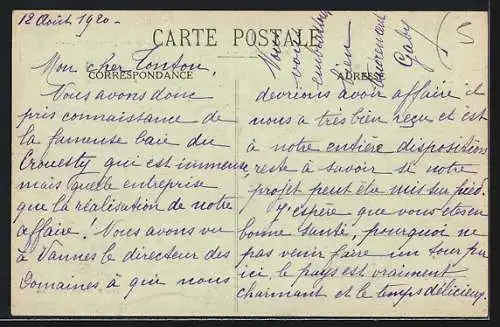 12 Août 1920 -
CARTE POSTALE
CORRESPONDANCE
ADRESSE
5
Mon cher Tonton,
Nous avons donc
pris connaissance de
la fameuse baie du
Crouesty qui est immense,
mais quelle entreprise
que la réalisation de notre
affaire ! Nous avons vu
à Vannes le directeur des
Domaines à qui nous
devrions avoir affaire il
nous a très bien reçu et est
à notre entière disposition
reste à savoir si notre
projet peut être mis sur pied.
J'espère que vous êtes en
bonne santé, pourquoi ne
pas venir faire un tour par
ici, le pays est vraiment
charmant et le temps délicieux.
Nous
vous
embrassons
bien
Gaby